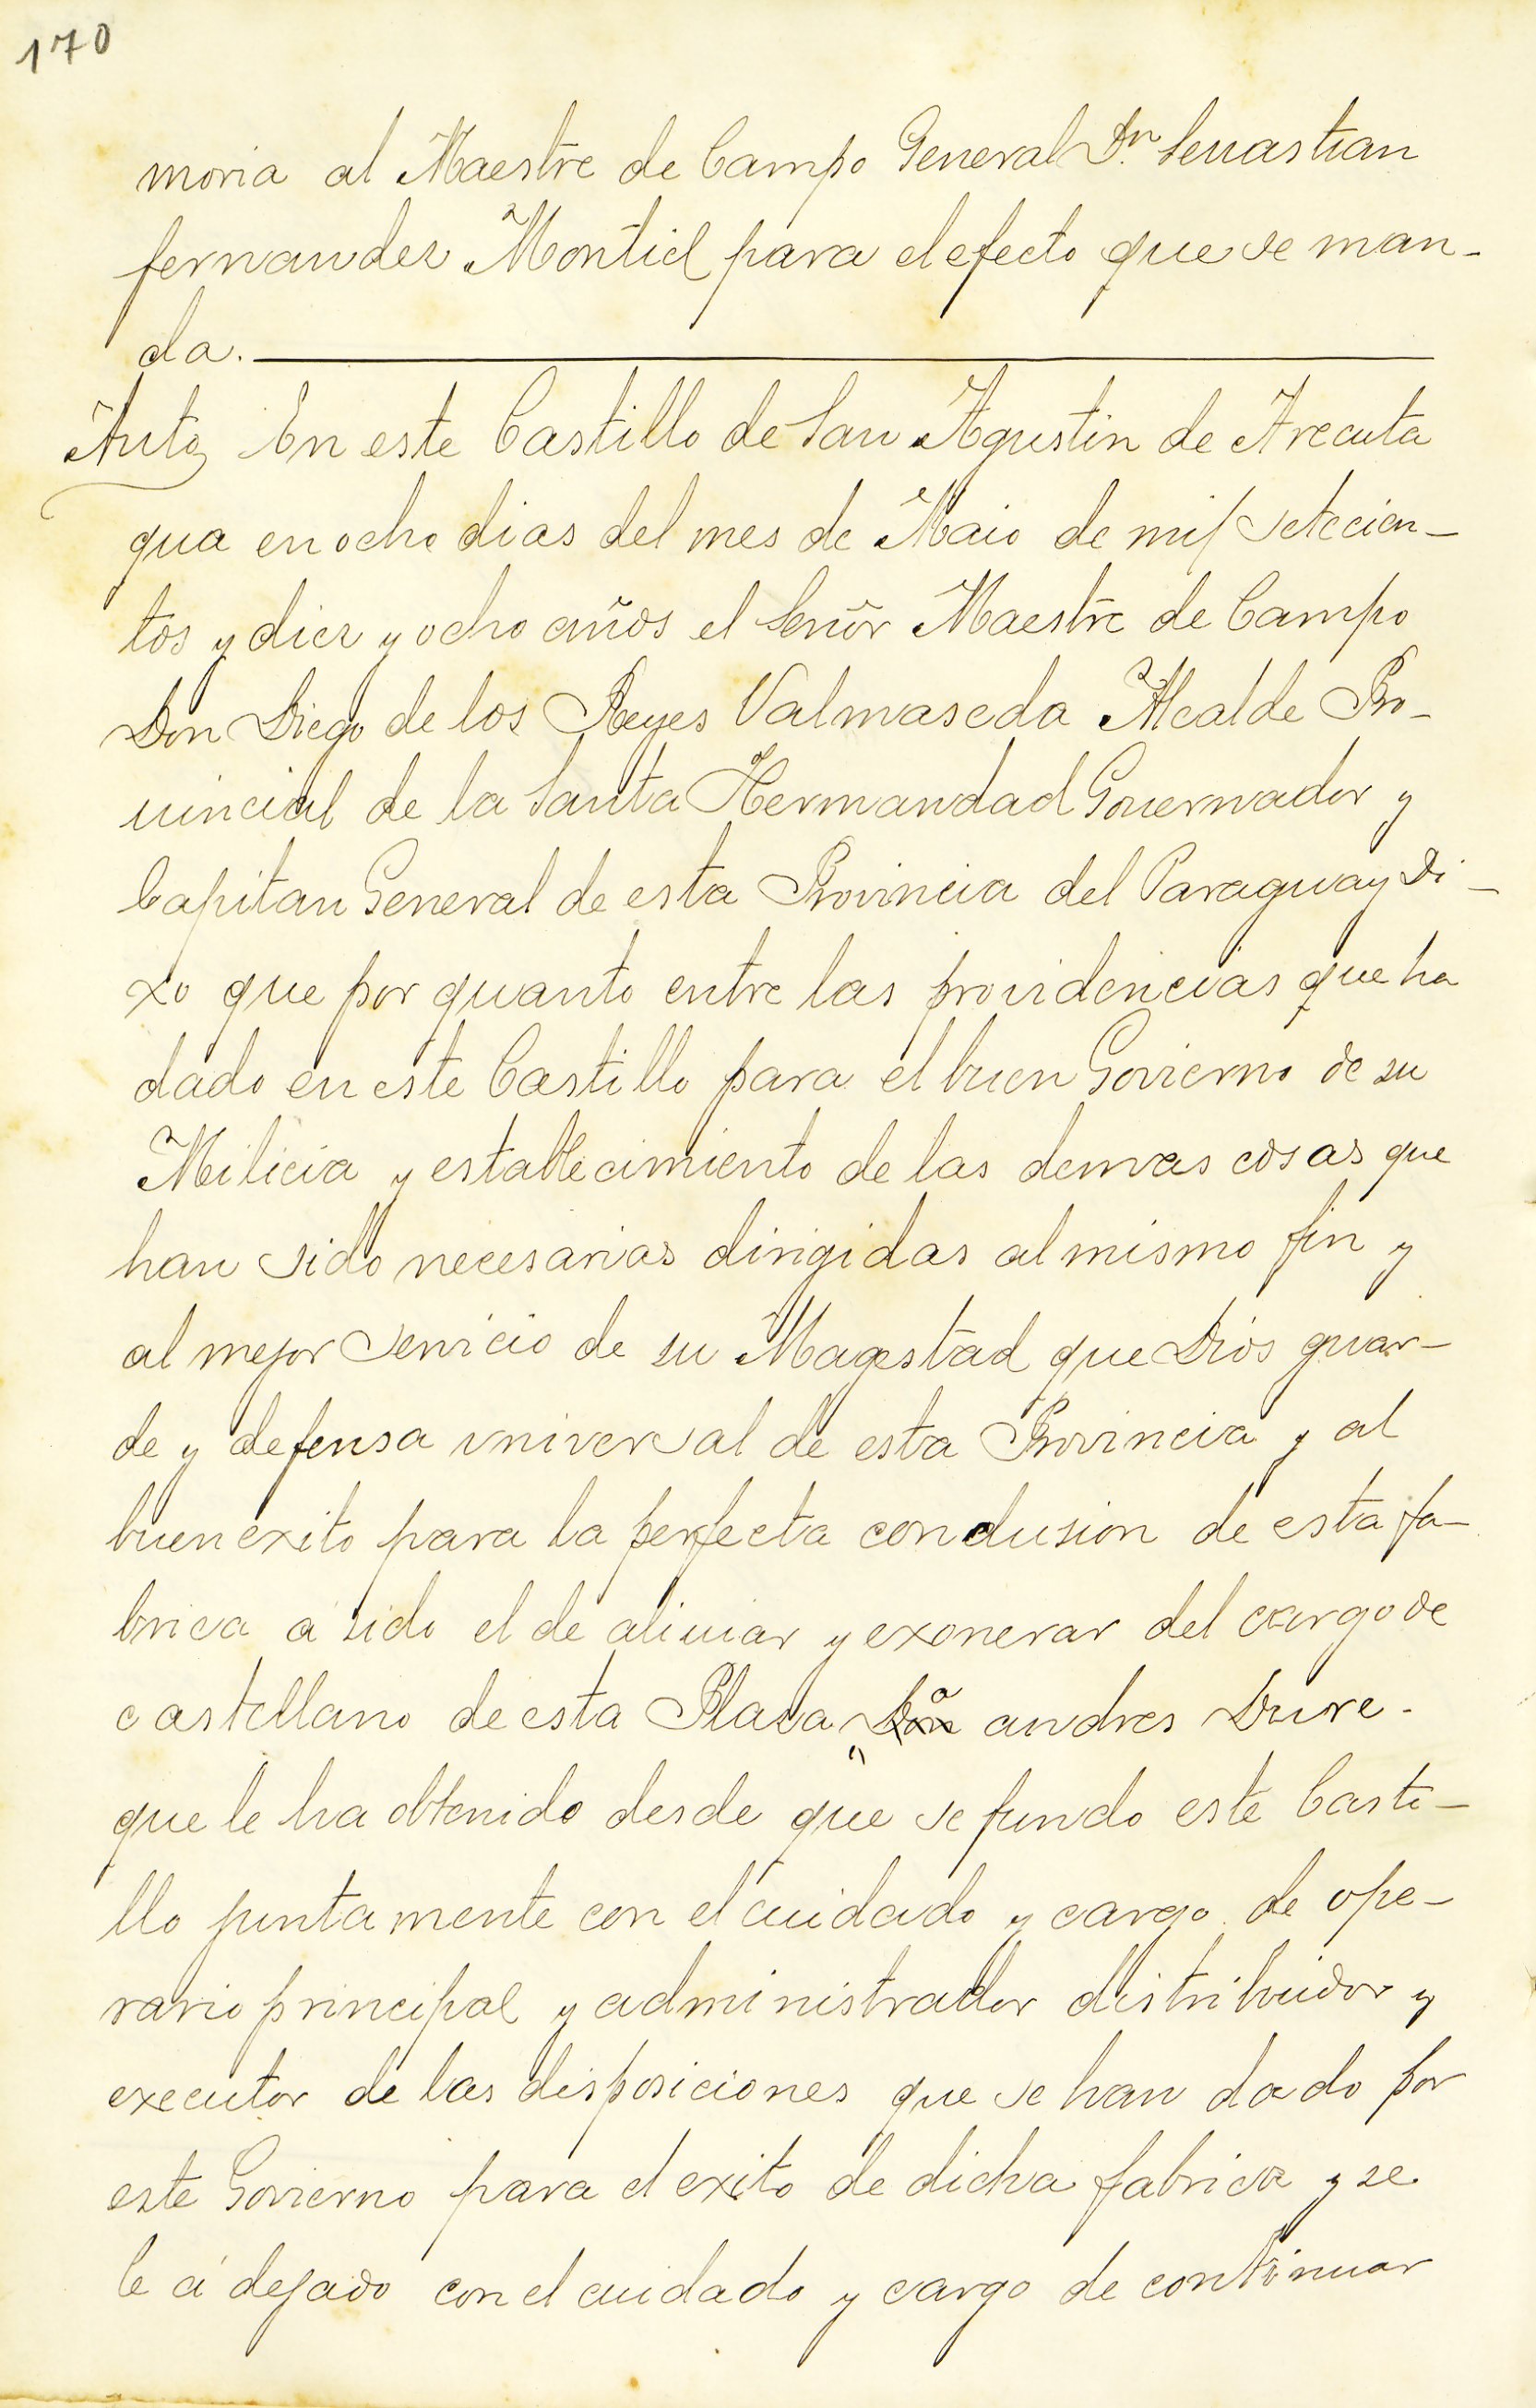 170
moria al Maestre de Campo General Dn. Seuastian
fernandez Montiel para el efecto que se man-
da.
Auto En este Castillo de San Agustin de Arecuta
gua en ocho dias del mes de Maio de mil setecien-
tos y diez y ocho años el Señor Maestre de Campo
Don Diego de los Reyes Valmaseda Alcalde Pro-
uincial de la Santa Hermandad Gouernador y
Capitan General de esta Provincia del Paraguay Di-
xo que por quanto entre las prouidencias que ha
dado en este Castillo para el buen Govierno de su
Milicia y establecimiento de las demas cosas que
han sido necesarias dirigidas al mismo fin y
al mejor servicio de su Magestad que Dios guar-
de y defensa vniversal de esta Provincia y al
buen exito para la perfecta conclusion de esta fa-
brica á sido el de aliuiar y exonerar del cargo de
castellano de esta Plaza a Don andres Dure.
que le ha obtenido desde que se fundo este Casti-
llo juntamente con el cuidado y cargo de ope-
rario principal y administrador distribuidor y
executor de las disposiciones que se han dado por
este Govierno para el exito de dicha fabrica y se
le á dejado con el cuidado y cargo de continuar